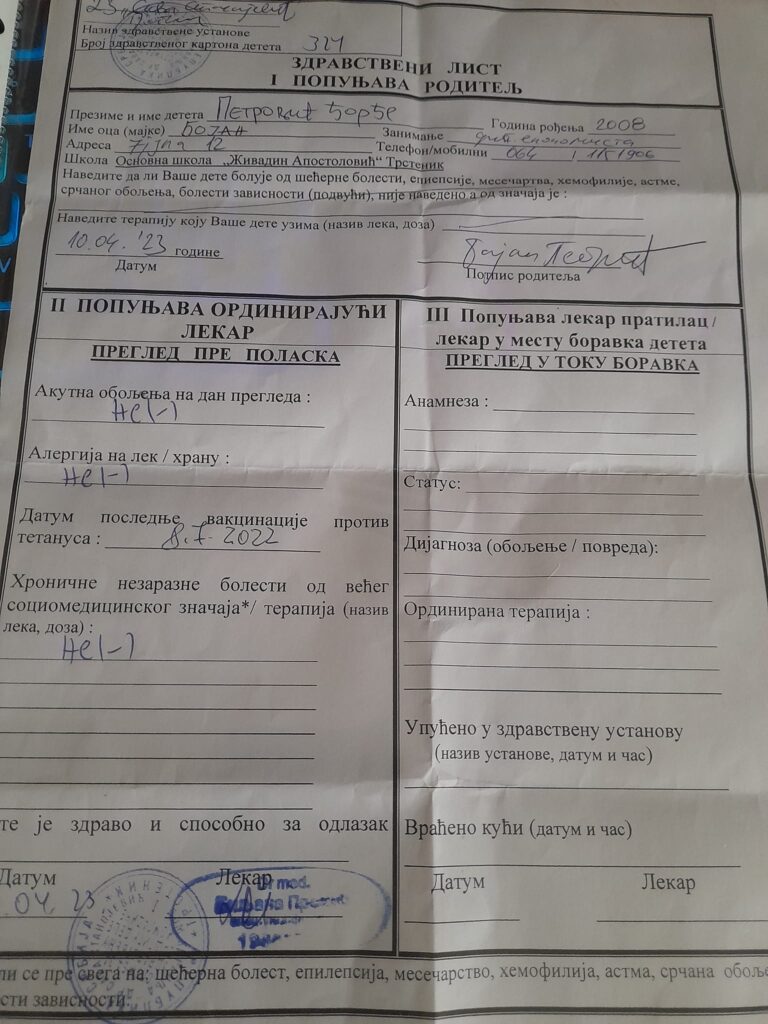 Назив здравствене установе
Број здравственог картона детета 324
ЗДРАВСТВЕНИ ЛИСТ
I ПОПУЊАВА РОДИТЕЉ
Презиме и име детета Петровић Ђорђе Година рођења 2008
Име оца (мајке) БОЈАН Занимање дипл. економиста
Адреса 7 јула 12 Телефон/мобилни 064
Школа Основна школа „Живадин Апостоловић“ Трстеник
Наведите да ли Ваше дете болује од шећерне болести, епиепсије, месечартва, хемофилије, астме,
срчаног обољења, болести зависности (подвући), није наведено а од значаја је :
Наведите терапију коју Ваше дете узима (назив лека, доза)
10.04. '23 године
Датум
Бојан Петровић
Потпис родитеља
II ПОПУЊАВА ОРДИНИРАЈУЋИ
ЛЕКАР
ПРЕГЛЕД ПРЕ ПОЛАСКА
Акутна обољења на дан прегледа :
Не (-)
Алергија на лек / храну :
Не (-)
Датум последње вакцинације против
тетануса : 8.7.2022
Хроничне незаразне болести од већег
социомедицинског значаја*/ терапија (назив
лека, доза) :
Не (-)
те је здраво и способно за одлазак
Датум Лекар
.04. 23
Dr med.
III Попуњава лекар пратилац /
лекар у месту боравка детета
ПРЕГЛЕД У ТОКУ БОРАВКА
Анамнеза :
Статус:
Дијагноза (обољење / повреда):
Ординирана терапија :
Упућено у здравствену установу
(назив установе, датум и час)
Враћено кући (датум и час)
Датум Лекар
ли се пре свега на: шећерна болест, епилепсија, месечарство, хемофилија, астма, срчана обоље
сти зависности.